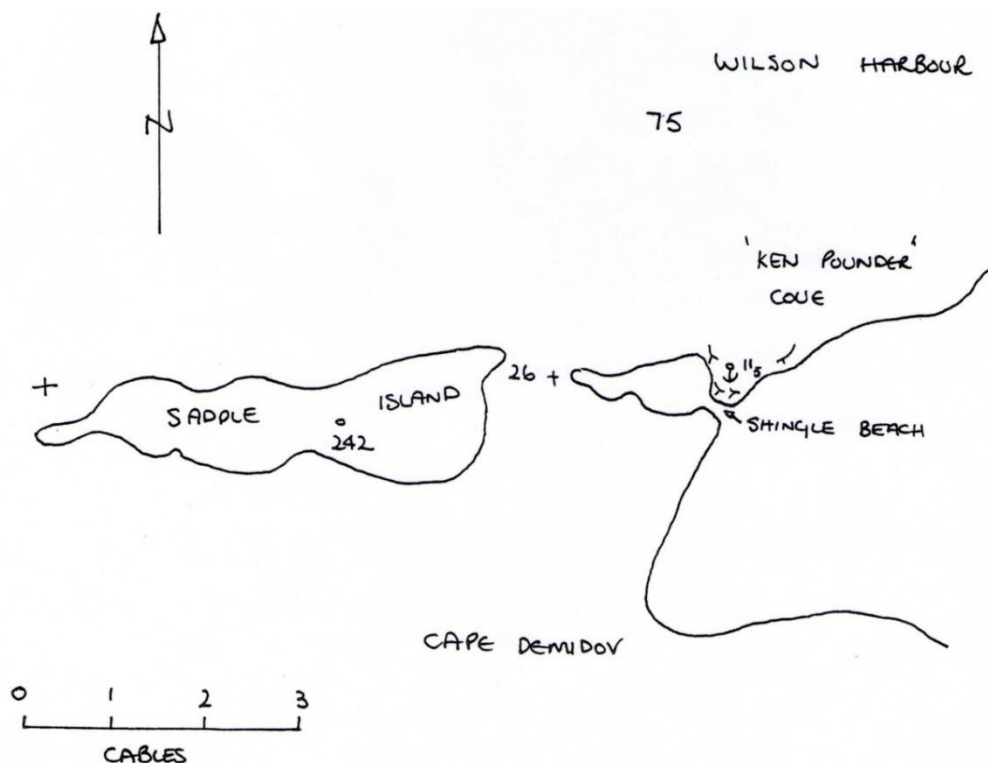 WILSON HARBOUR
N
75
'KEN POUNDER'
COVE
26
11₅
SADDLE ISLAND
242
SHINGLE BEACH
CAPE DEMIDOV
0 1 2 3
CABLES